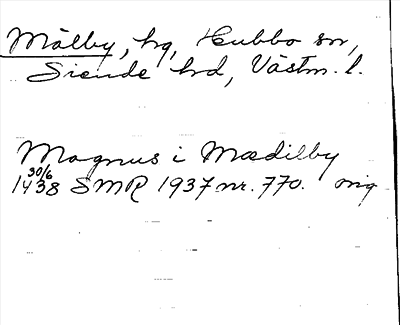 Målby, hg, Hubbo sn,
Siende hd, Västm. l.
Magnus i Mædilby
30/6
1438 SMR 1937 nr. 770. orig